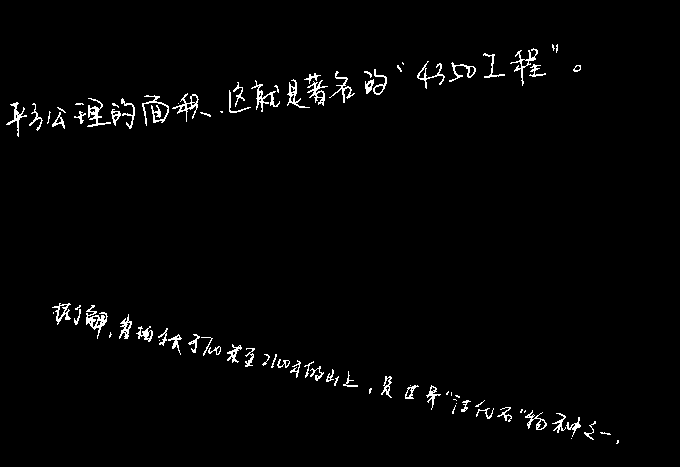 平方公理的面积,这就是著名的“4350工程”。
据了解,常栖于700米至2100米的山上,是世界“活化石”物种之一,